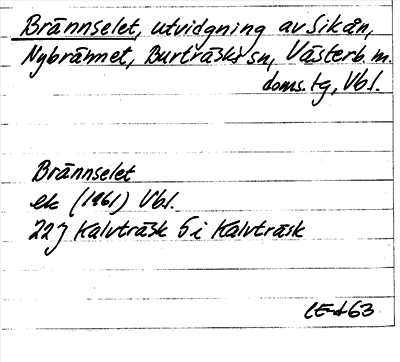 Brännselet, utvidgning av Sikån,
Nybrännet, Burträsks sn, Västerb. m.
doms. tg, Vbl.
Brännselet
ek (1961) Vbl.
22J Kalvträsk 6 i Kalvträsk